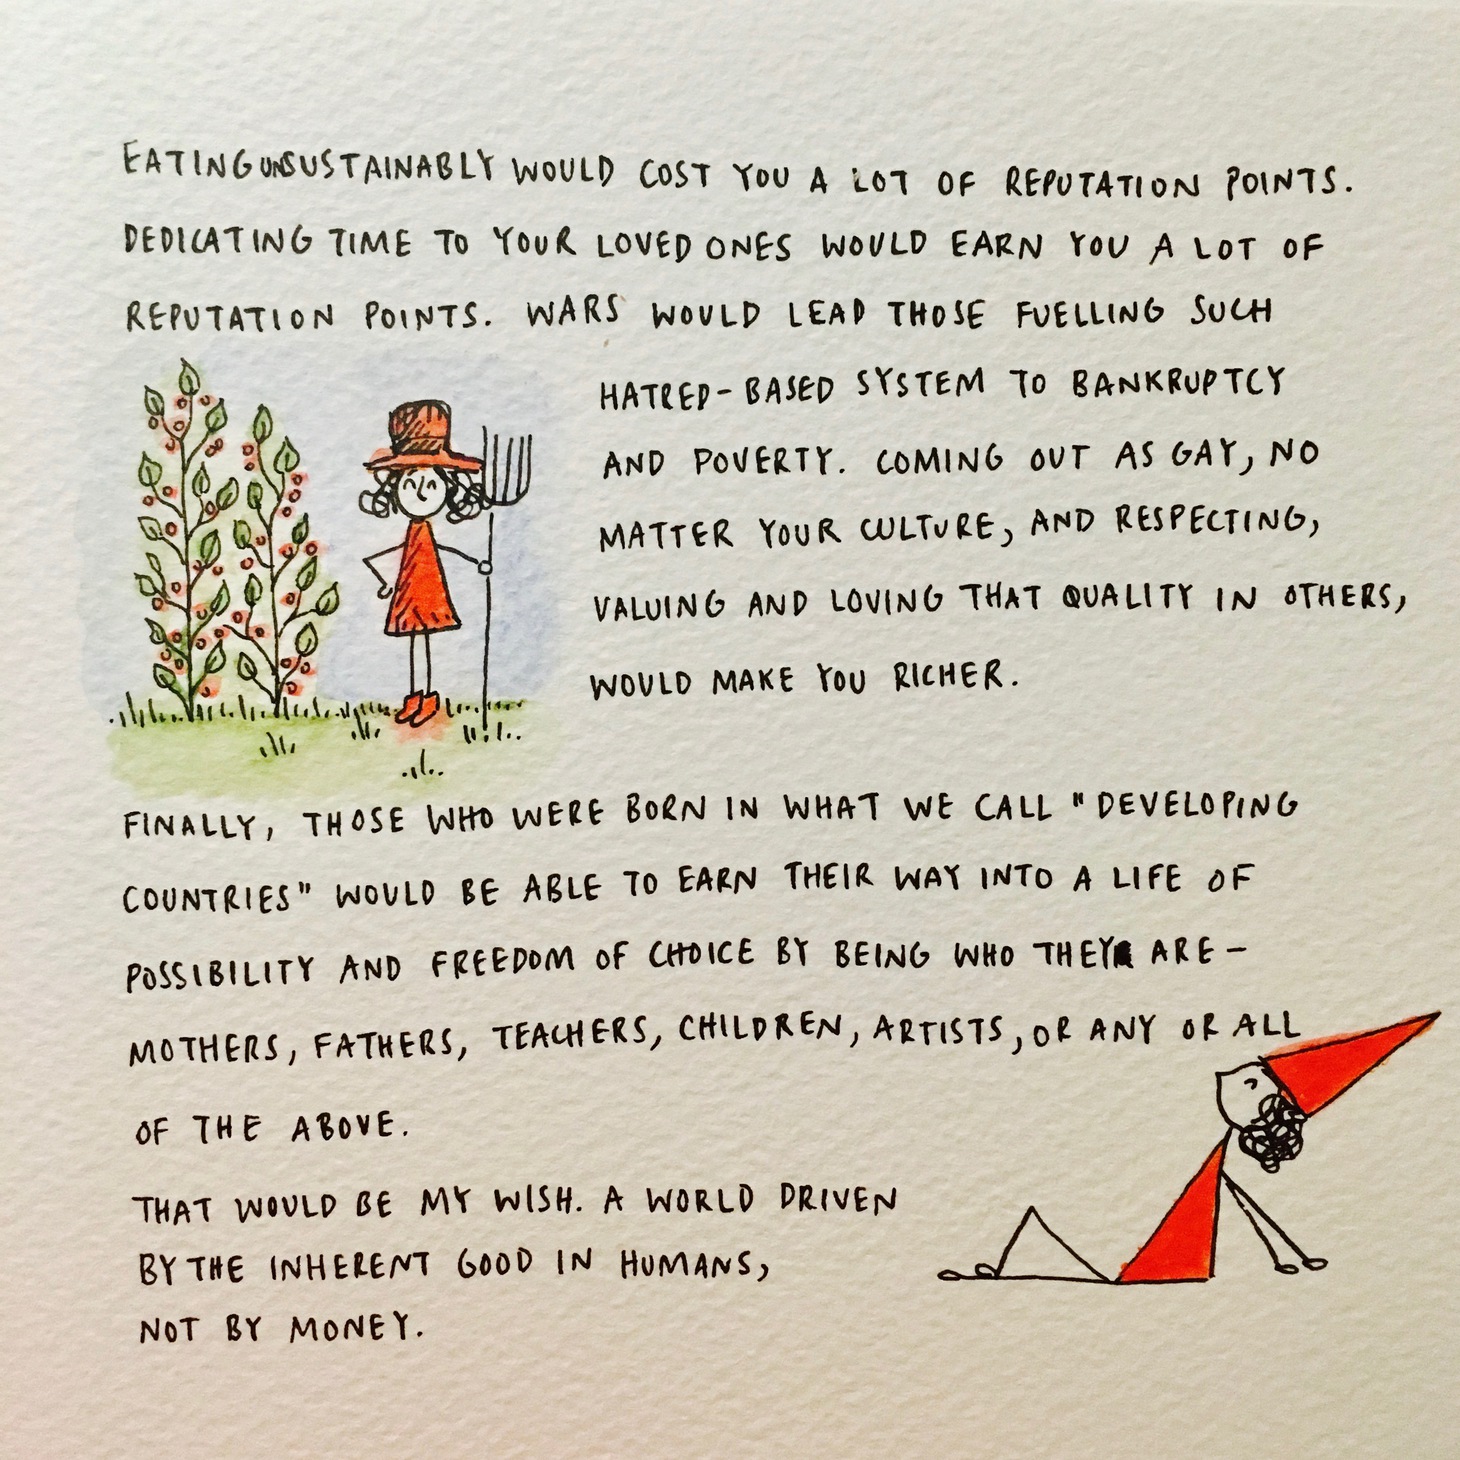 EATING UNSUSTAINABLY WOULD COST YOU A LOT OF REPUTATION POINTS.
DEDICATING TIME TO YOUR LOVED ONES WOULD EARN YOU A LOT OF
REPUTATION POINTS. WARS WOULD LEAD THOSE FUELLING SUCH
HATRED-BASED SYSTEM TO BANKRUPTCY
AND POVERTY. COMING OUT AS GAY, NO
MATTER YOUR CULTURE, AND RESPECTING,
VALUING AND LOVING THAT QUALITY IN OTHERS,
WOULD MAKE YOU RICHER.
FINALLY, THOSE WHO WERE BORN IN WHAT WE CALL "DEVELOPING
COUNTRIES" WOULD BE ABLE TO EARN THEIR WAY INTO A LIFE OF
POSSIBILITY AND FREEDOM OF CHOICE BY BEING WHO THEY ARE -
MOTHERS, FATHERS, TEACHERS, CHILDREN, ARTISTS, OR ANY OR ALL
OF THE ABOVE.
THAT WOULD BE MY WISH. A WORLD DRIVEN
BY THE INHERENT GOOD IN HUMANS,
NOT BY MONEY.